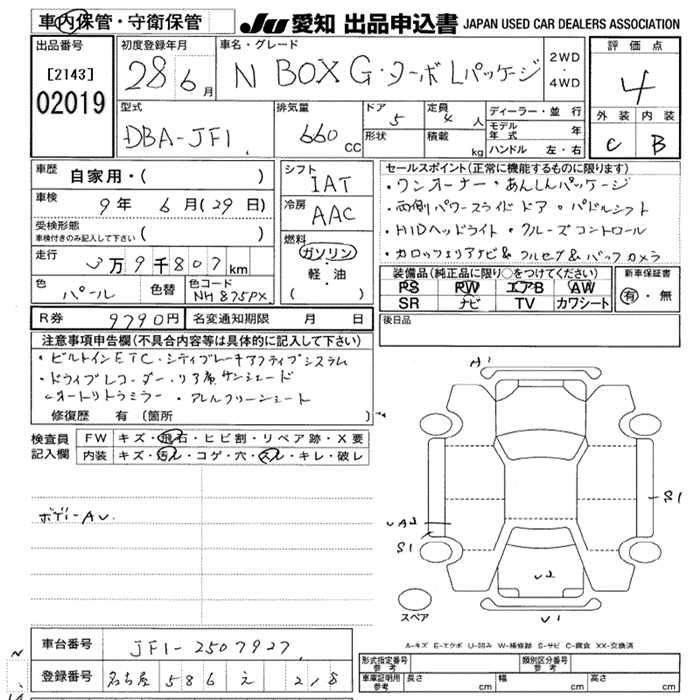 車内保管・守衛保管
JU 愛知 出品申込書 JAPAN USED CAR DEALERS ASSOCIATION
出品番号 初度登録年月 車名・グレード 評価点
[2143] 28年 6月 N BOX G・ターボLパッケージ 2WD・4WD 4
02019 型式 排気量 ドア 定員 ディーラー・並行 外装 内装
DBA-JF1 660cc 5 4人 モデル年式 年 C B
形状 積載 kg ハンドル 左・右
車歴 自家用・( ) シフト セールスポイント(正常に機能するものに限ります)
IAT ・ワンオーナー・あんしんパッケージ
車検 9年 6月(29日) 冷房 ・両側パワースライドドア・パドルシフト
AAC
受検形態 ・HIDヘッドライト・クルーズコントロール
車検付きのみ記入して下さい( ) 燃料
走行 3万9千807km ガソリン ・カロッツェリアナビ&フルセグ&バックカメラ
軽・油 装備品(純正品に限り○をつけてください) 新車保証書
色 パール 色替 色コード NH875PX ( ) PS PW エアB AW 有・無
SR ナビ TV カワシート
R券 9790円 名変通知期限 月 日 後日品
注意事項申告欄(不具合内容等は具体的に記入して下さい)
・ビルトインETC・シティブレーキアクティブシステム A1
・ドライブレコーダー・リア席サンシェード
・オートリトラミラー・アレルフリーシート
修復歴 有(箇所 )
検査員記入欄 FW キズ・飛石・ヒビ割・リペア跡・X要
内装 キズ・汚レ・コゲ・穴・スレ・キレ・破レ
S1
ボディーAU A2
S1
U2
スペア U1
A-キズ E-エクボ U-凹み W-補修跡 S-サビ C-腐食 XX-交換済
車台番号 JF1-2507927
形式指定番号 参考 類別区分番号 参考
登録番号 名古屋 586 え 218
車庫証明用 参考 長さ cm 幅 cm 高さ cm